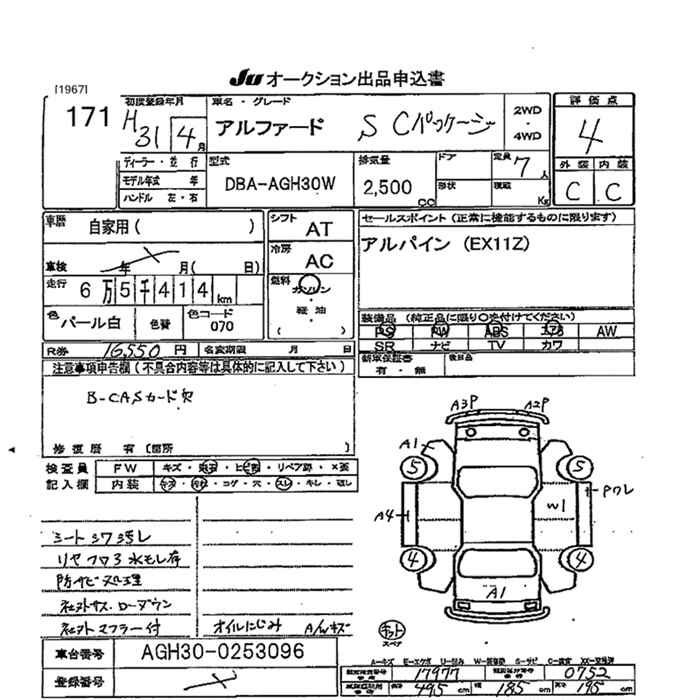 JU オークション出品申込書
[1967]
171
初度登録年月 H31 4月
車名・グレード
アルファード S Cパッケージ
2WD・4WD
評価点
4
ディーラー・並行
モデル年式 年
ハンドル 左・右
型式
DBA-AGH30W
排気量
2,500 CC
ドア
形状
定員 7人
積載 Kg
外装 内装
C C
車歴 自家用( )
シフト AT
セールスポイント(正常に機能するものに限ります)
車検 年 月( 日)
冷房 AC
アルパイン (EX11Z)
走行 6万5千414km
燃料 ガソリン・軽油・( )
色 パール白 色替 色コード 070
装備品(純正品に限り○を付けてください)
PS PW ABS エアB AW
SR ナビ TV カワ
R券 16,550円 名変期限 月 日
新車保証書 有・無 後日品
注意事項申告欄(不具合内容等は具体的に記入して下さい)
B-CASカード欠
修復歴 有〔箇所
検査員記入欄
FW キズ・ ・ ・リペア跡・×要
内装 キズ・ ・コゲ・穴・スレ・キレ・
シートシワ汚レ
リヤフロア水モレ有
防サビ処理
社外サス.ローダウン
社外マフラー付
オイルにじみ A/wキズ
A3P A2P
A1
5 5
A4 W1 Pワレ
4 4
A1
キット
スペア
車台番号 AGH30-0253096
登録番号
A=キズ E=エクボ U=凹み W=補修跡 S=サビ C=腐食 XX=交換済
17977 0752
495cm 185cm 195cm